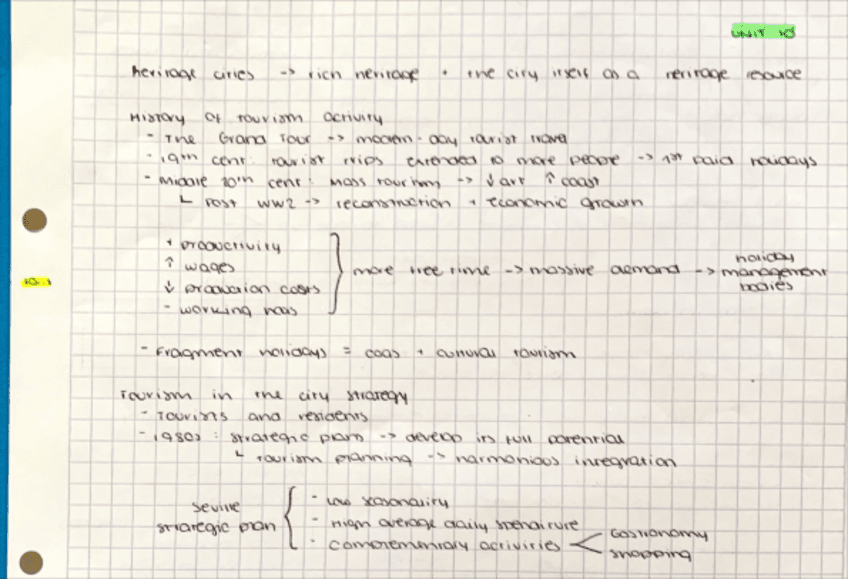 UNIT 10
heritage cities -> rich heritage + the city itself as a heritage resource
History of tourism activity
- The Grand Tour -> modern-day tourist travel
- 19th cent: tourist trips extended to more people -> 1st paid holidays
- Middle 20th cent: Mass tourism -> ↓ art ↑ coast
L Post WW2 -> reconstruction + economic growth
+ productivity
↑ wages
↓ production costs
- working hours
more free time -> massive demand -> holiday management bodies
10.1
- Fragment holidays = coas + cultural tourism
Tourism in the city strategy
- Tourists and residents
- 1980s: strategic plans -> develop its full potential
L tourism planning -> harmonious integration
Seville strategic plan
- low seasonality
- high average daily spenditure
- complementary activities < Gastronomy
shopping